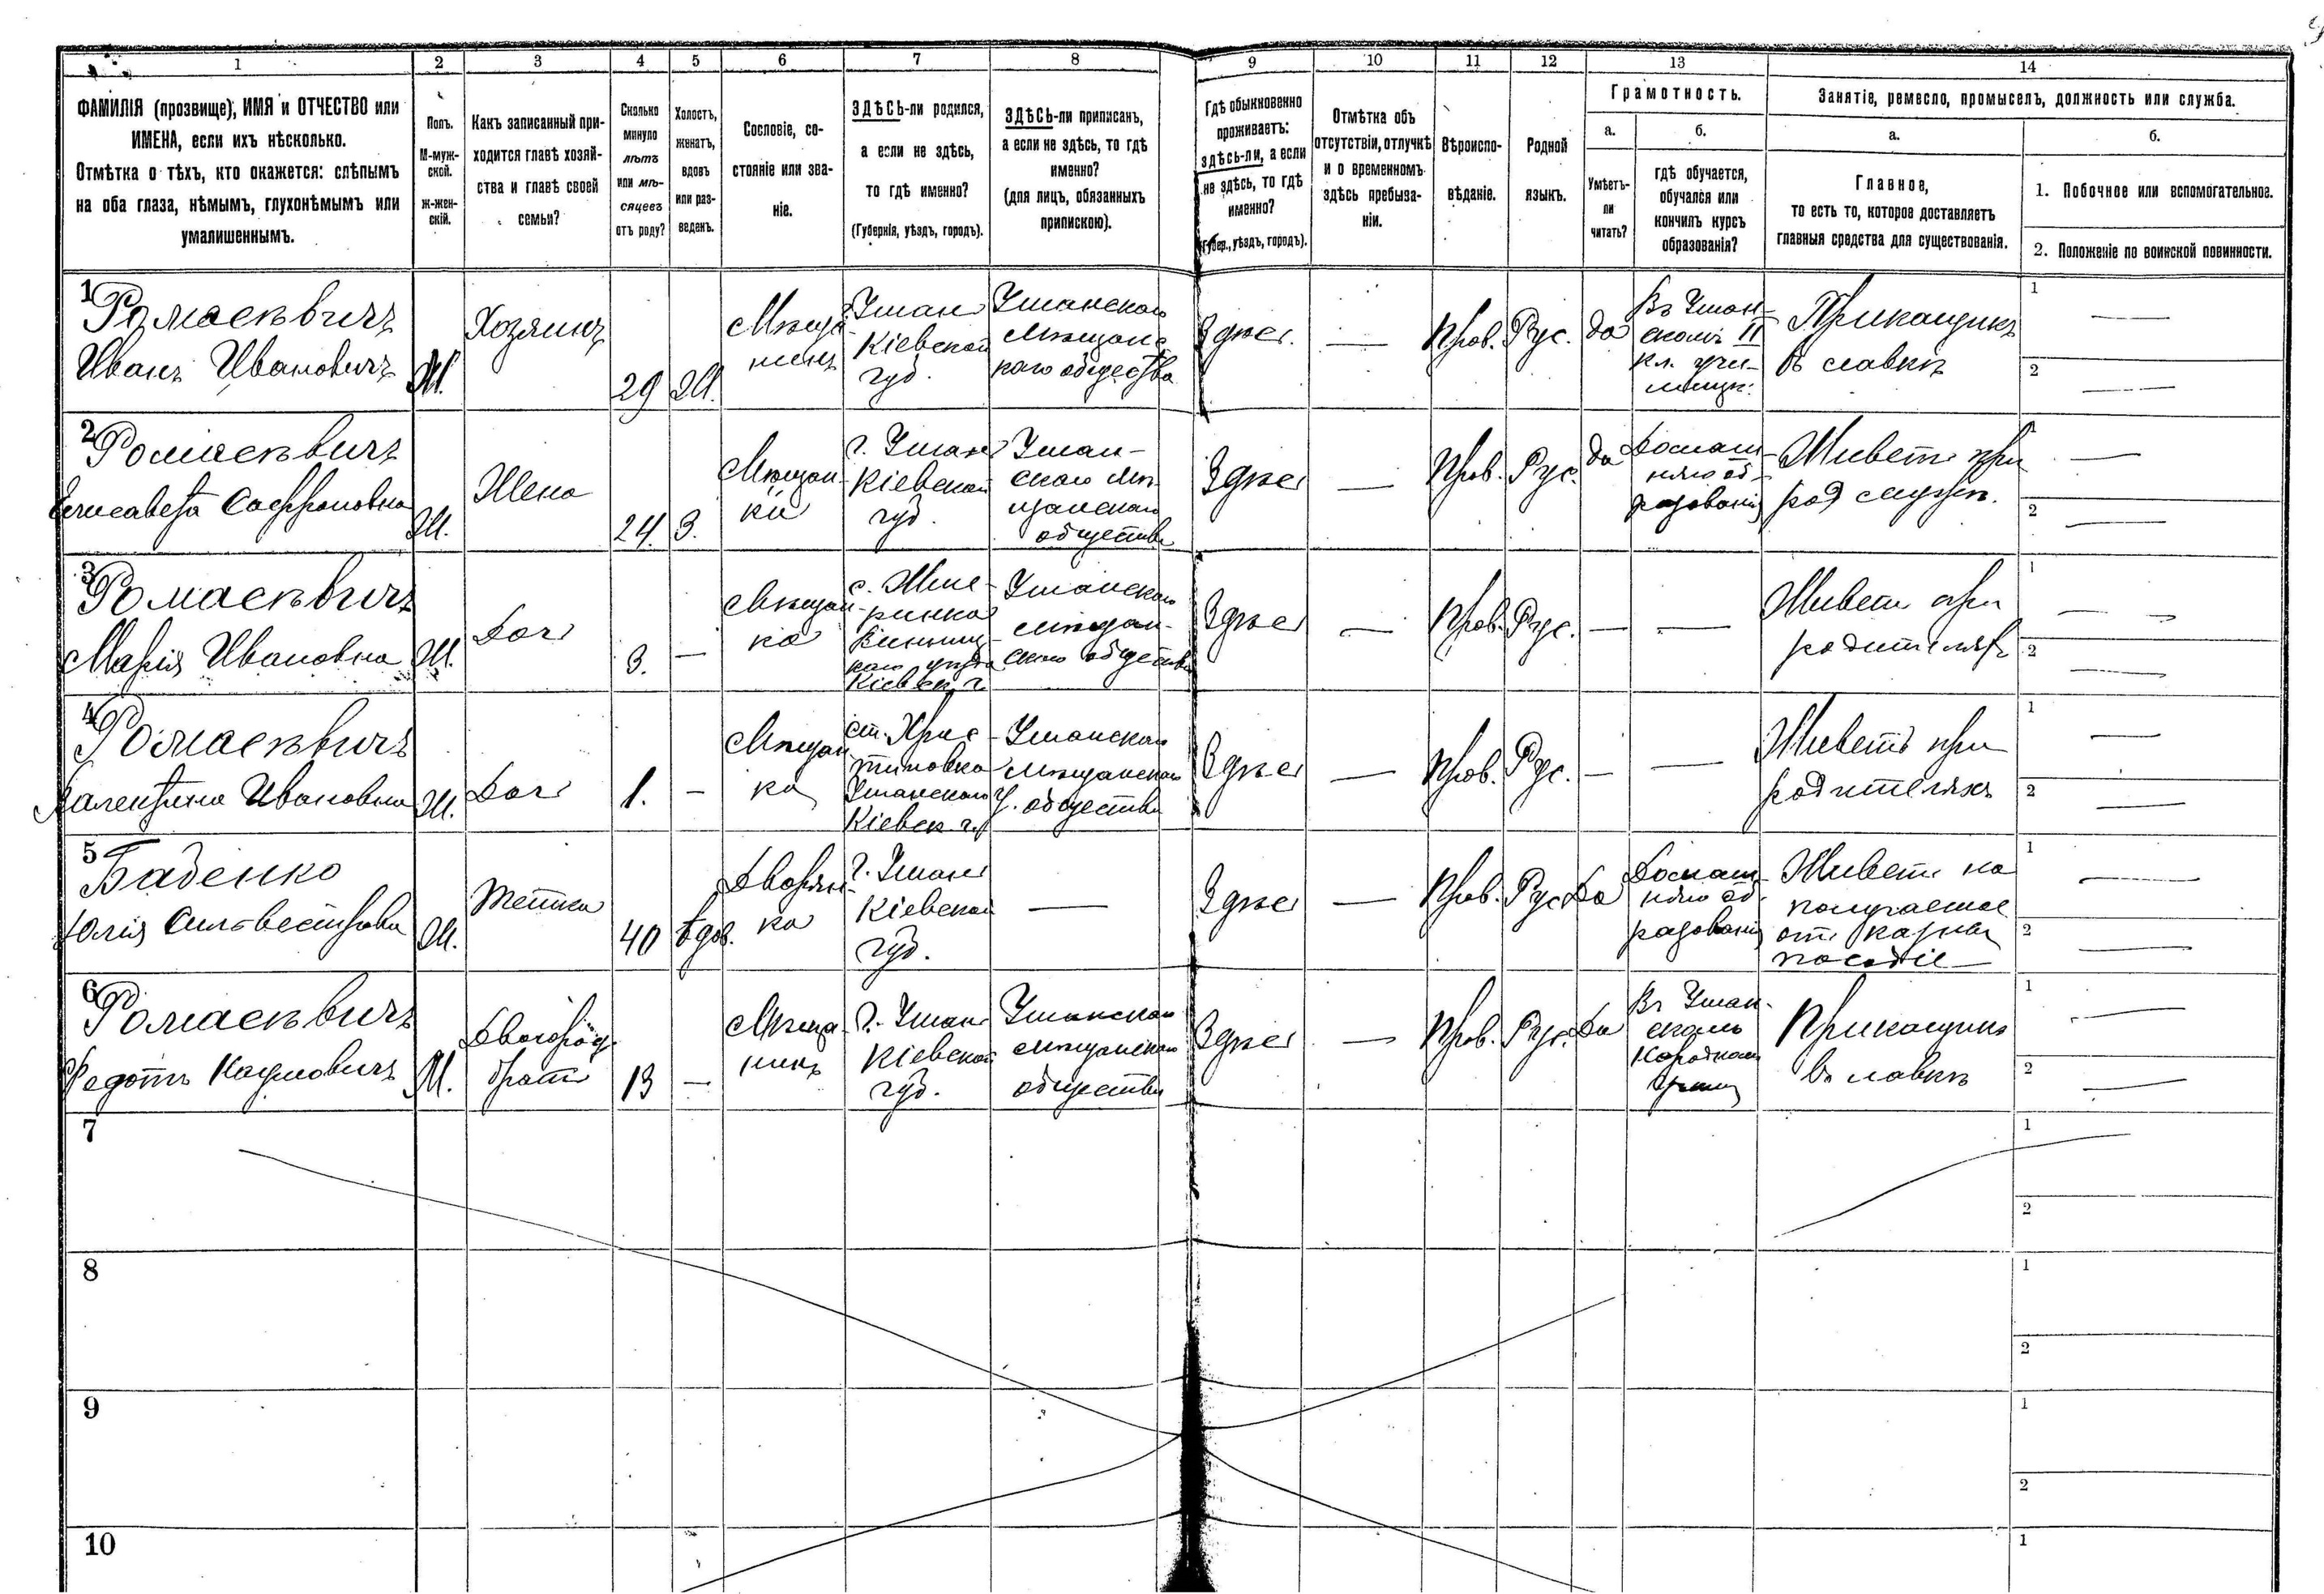 1
2
3
4
5
6
7
8
9
10
11
12
13
14
ФАМИЛІЯ (прозвище), ИМЯ и ОТЧЕСТВО или
ИМЕНА, если ихъ нѣсколько.
Отмѣтка о тѣхъ, кто окажется: слѣпымъ
на оба глаза, нѣмымъ, глухонѣмымъ или
умалишеннымъ.
Полъ.
М-муж-
ской.
ж-жен-
скій.
Какъ записанный при-
ходится главѣ хозяй-
ства и главѣ своей
семьи?
Сколько
минуло
лѣтъ
или мѣ-
сяцевъ
отъ роду?
Холостъ,
женатъ,
вдовъ
или раз-
веденъ.
Сословіе, со-
стояніе или зва-
ніе.
ЗДѢСЬ-ли родился,
а если не здѣсь,
то гдѣ именно?
(Губернія, уѣздъ, городъ).
ЗДѢСЬ-ли приписанъ,
а если не здѣсь, то гдѣ
именно?
(для лицъ, обязанныхъ
припискою).
Гдѣ обыкновенно
проживаетъ:
здѣсь-ли, а если
не здѣсь, то гдѣ
именно?
(Губер., уѣздъ, городъ).
Отмѣтка объ
отсутствіи, отлучкѣ
и о временномъ
здѣсь пребыва-
ніи.
Вѣроиспо-
вѣданіе.
Родной
языкъ.
Грамотность.
а.
Умѣетъ-
ли
читать?
б.
гдѣ обучается,
обучался или
кончилъ курсъ
образованія?
Занятіе, ремесло, промыселъ, должность или служба.
а.
Главное,
то есть то, которое доставляетъ
главныя средства для существованія.
б.
1. Побочное или вспомогательное.
2. Положеніе по воинской повинности.
1
Ромасѣвичъ
Иванъ Ивановичъ
М.
Хозяинъ
29
Ж.
Мѣща
нинъ
Умани
Кіевской
губ.
Уманскаго
Мѣщанс
каго общества
Здѣсь.
—
Прав.
Рус.
да
Въ Уман-
скомъ II
кл. учи-
лищѣ.
Прикащикъ
въ славкѣ
1
—
2
—
2
Ромасѣвичъ
Елисавета Сафроновна
Ж.
Жена
24.
З.
Мѣщан-
ка
г. Умани
Кіевской
губ.
Уман-
скаго мѣ-
щанскаго
общества
Здѣсь
—
Прав.
Рус.
да
Домаш-
няго об-
разованія
Живетъ при
—
2
—
3
Ромасѣвичъ
Марія Ивановна
Ж.
Дочь
3.
—
Мѣщан-
ка
Кіевск. г.
Уманскаго
мѣщан-
скаго общества
Здѣсь
—
Прав.
Рус.
—
—
Живетъ при
родителяхъ
1
—
2
—
4
Ромасѣвичъ
Валентина Ивановна
Ж.
Дочь
1.
—
Мѣщан
ка
ст. Хрис-
тиновка
Уманского у.
Кіевск. г.
Уманскаго
мѣщанскаго
общества
Здѣсь
—
Прав.
Рус.
—
—
Живетъ при
родителяхъ
1
—
2
—
5
Баденко
Юлія Сильвестрова
Ж.
Тетка
40
вдов.
Дворян-
ка
г. Умани
Кіевской
губ.
—
Здѣсь
—
Прав.
Рус.
Да
Домаш-
няго об-
разованія
Живетъ на
получаемое
отъ казны
пособіе
1
—
2
—
6
Ромасѣвичъ
Федотъ Наумовичъ
М.
Двоюрод.
братъ
13
—
Мѣща-
нинъ
г. Умани
Кіевской
губ.
Уманскаго
мѣщанскаго
общества
Здѣсь
—
Прав.
Рус.
Да
Въ Уман-
скомъ
Прикащикъ
въ лавкѣ
1
—
2
—
7
1
2
8
1
2
9
1
2
10
1